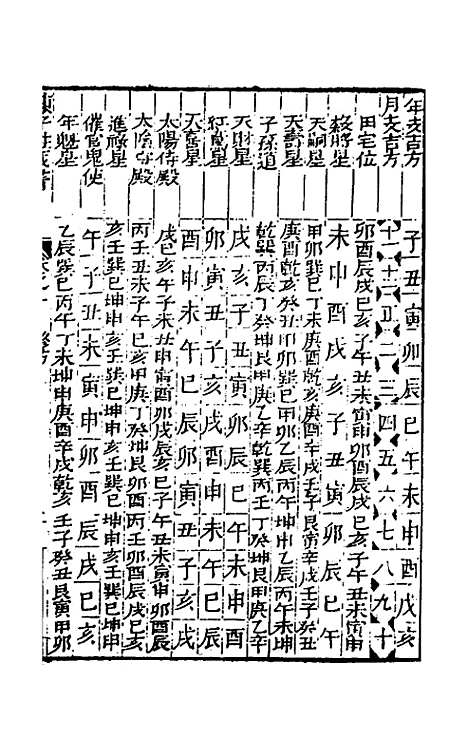 年支吉方 子 丑 寅 卯 辰 巳 午 未 申 酉 戌 亥
月支吉方 十一 十二 正 二 三 四 五 六 七 八 九 十
田宅位 卯酉 辰戌 巳亥 子午 丑未 寅申 卯酉 辰戌 巳亥 子午 丑未 寅申
殺將星 未 申 酉 戌 亥 子 丑 寅 卯 辰 巳 午
天嗣星 甲卯 巽巳 丁未 庚酉 乾亥 癸丑
天壽星 庚酉 乾亥 癸丑 甲卯 乙辰 丙午 坤申
子孫道 乾巽 丙辰 丁癸 坤艮 甲庚 乙辛 乾巽 丙壬 丁癸 坤艮 甲庚 乙辛
天財星 戌 亥 子 丑 寅 卯 辰 巳 午 未 申 酉
紅鸞星 卯 寅 丑 子 亥 戌 酉 申 未 午 巳 辰
天喜星 酉 申 未 午 巳 辰 卯 寅 丑 子 亥 戌
太陽侍殿 戌 巳亥 午子 未丑 申寅 酉卯 戌辰 亥巳 子午 丑未 寅申 卯酉
太陰侍殿 丙壬 丑未 子午 巳亥 甲庚 丁癸 坤艮 卯酉 丙壬 卯酉 辰戌 巳亥
進祿星 亥壬 巽巳 坤申 亥壬 巽巳 坤申 亥壬 巽巳 坤申 亥壬 巽巳 坤申
催官鬼使 午 子 丑 未 寅 申 卯 酉 辰 戌 巳 亥
年魁星 乙辰 巽巳 丙午 丁未 坤申 庚酉 辛戌 乾亥 壬子 癸丑 艮寅 甲卯